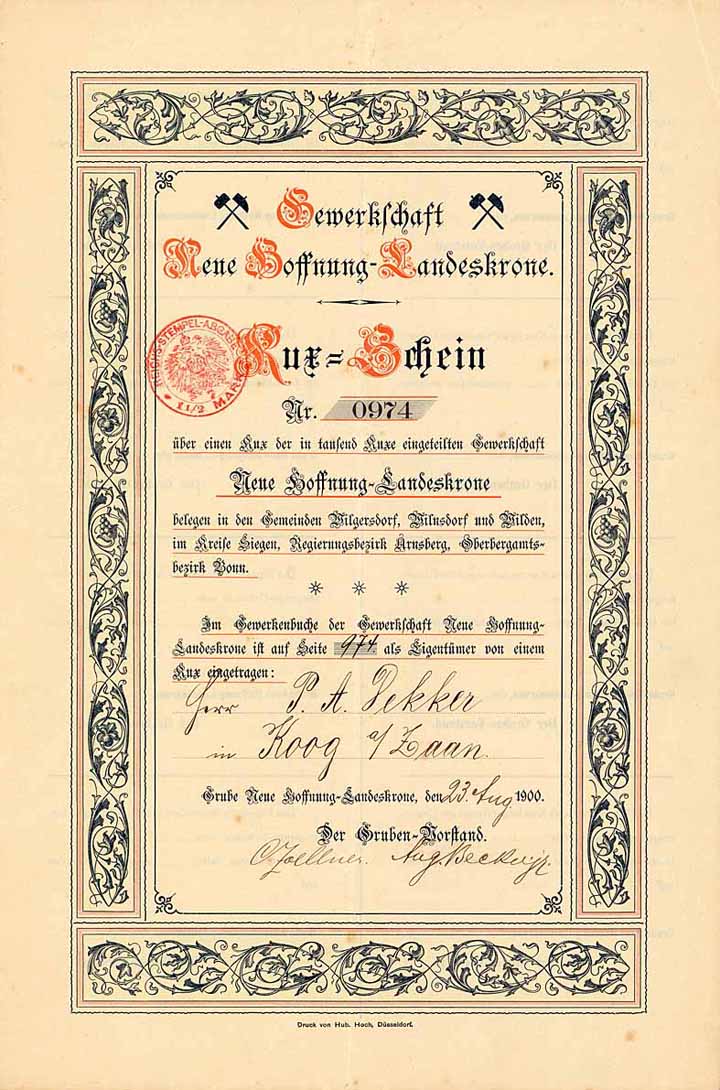 Gewerkschaft
Neue Hoffnung-Landeskrone.
REICHS-STEMPEL-ABGABE
1 1/2 MARK
Kux-Schein
Nr. 0974
über einen Kux der in tausend Kuxe eingeteilten Gewerkschaft
Neue Hoffnung-Landeskrone
belegen in den Gemeinden Wilgersdorf, Wilnsdorf und Wilden,
im Kreise Siegen, Regierungsbezirk Arnsberg, Oberbergamts-
bezirk Bonn.
Im Gewerkenbuche der Gewerkschaft Neue Hoffnung-
Landeskrone ist auf Seite 974 als Eigentümer von einem
Kux eingetragen:
Herr P. A. Dekker
in Koog a/ Zaan.
Grube Neue Hoffnung-Landeskrone, den 23. Aug 1900.
Der Gruben-Vorstand.
Druck von Hub. Hoch, Düsseldorf.